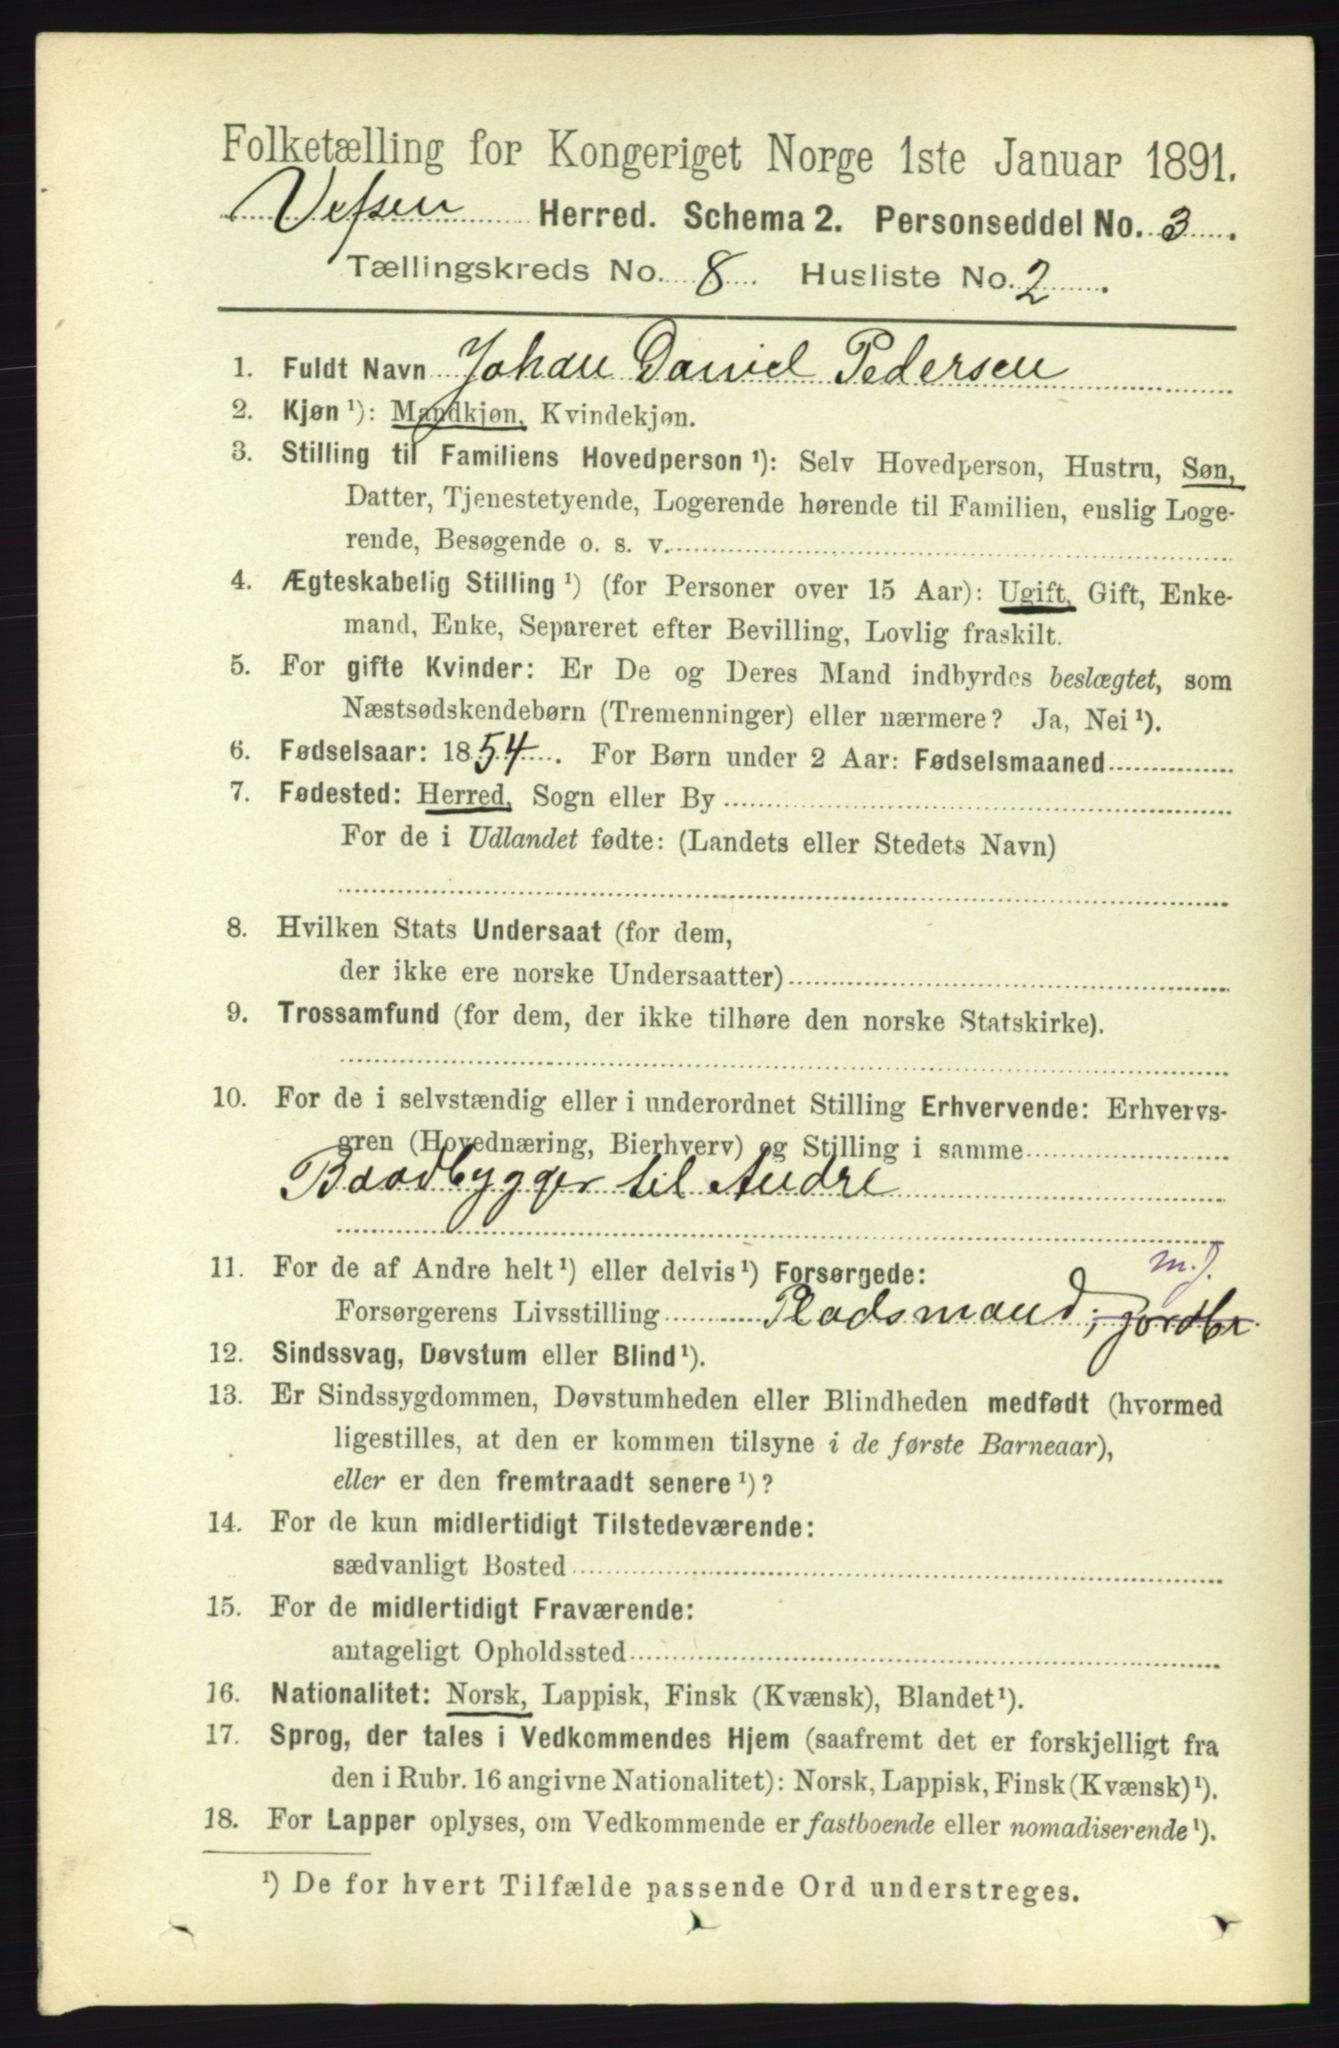 Folketælling for Kongeriget Norge 1ste Januar 1891.
Vefsen Herred. Schema 2. Personseddel No. 3.
Tællingskreds No. 8. Husliste No. 2.
1. Fuldt Navn Johan Daniel Pedersen
2. Kjøn ¹): Mandkjøn, Kvindekjøn.
3. Stilling til Familiens Hovedperson ¹): Selv Hovedperson, Hustru, Søn,
Datter, Tjenestetyende, Logerende hørende til Familien, enslig Loge-
rende, Besøgende o. s. v.
4. Ægteskabelig Stilling ¹) (for Personer over 15 Aar): Ugift, Gift, Enke-
mand, Enke, Separeret efter Bevilling, Lovlig fraskilt.
5. For gifte Kvinder: Er De og Deres Mand indbyrdes beslægtet, som
Næstsødskendebørn (Tremenninger) eller nærmere? Ja, Nei ¹).
6. Fødselsaar: 1854. For Børn under 2 Aar: Fødselsmaaned
7. Fødested: Herred, Sogn eller By
For de i Udlandet fødte: (Landets eller Stedets Navn)
8. Hvilken Stats Undersaat (for dem,
der ikke ere norske Undersaatter)
9. Trossamfund (for dem, der ikke tilhøre den norske Statskirke).
10. For de i selvstændig eller i underordnet Stilling Erhvervende: Erhvervs-
gren (Hovednæring, Bierhverv) og Stilling i samme
Baadbygger til Andre
11. For de af Andre helt ¹) eller delvis ¹) Forsørgede:
m.j.
Forsørgerens Livsstilling Pladsmand, jordbr.
12. Sindssvag, Døvstum eller Blind ¹).
13. Er Sindssygdommen, Døvstumheden eller Blindheden medfødt (hvormed
ligestilles, at den er kommen tilsyne i de første Barneaar),
eller er den fremtraadt senere ¹)?
14. For de kun midlertidigt Tilstedeværende:
sædvanligt Bosted
15. For de midlertidigt Fraværende:
antageligt Opholdssted
16. Nationalitet: Norsk, Lappisk, Finsk (Kvænsk), Blandet ¹).
17. Sprog, der tales i Vedkommendes Hjem (saafremt det er forskjelligt fra
den i Rubr. 16 angivne Nationalitet): Norsk, Lappisk, Finsk (Kvænsk) ¹).
18. For Lapper oplyses, om Vedkommende er fastboende eller nomadiserende ¹).
¹) De for hvert Tilfælde passende Ord understreges.